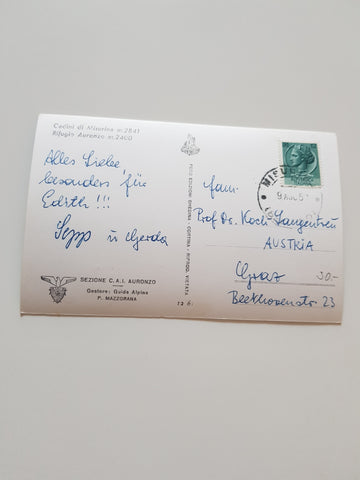 Cadini di Misurina m. 2841
Rifugio Auronzo m. 2400
Alles Liebe
besonders für
Edith !!!
Sepp u Gerda
SEZIONE C.A.I. AURONZO
Gestore: Guida Alpina
P. MAZZORANA
FOTO EDIZIONI GHEDINA - CORTINA - RIPROD. VIETATA
12 61
Fam.
Prof. Dr. Koch Langentreu
AUSTRIA
Graz
30.-
Beethovenstr 23